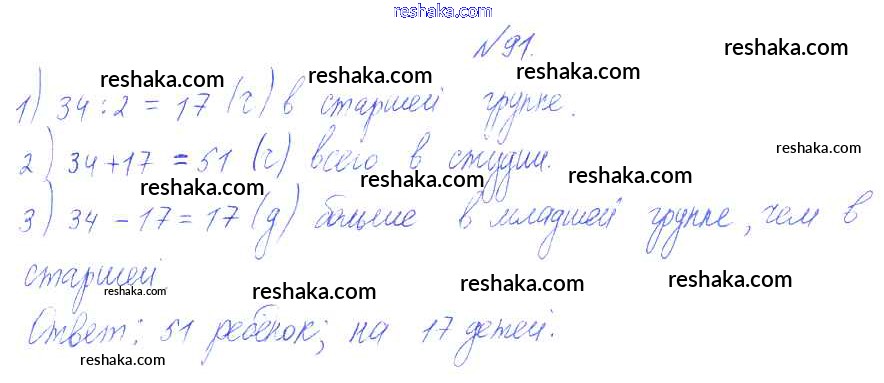 reshaka.com
№91.
reshaka.com
reshaka.com reshaka.com reshaka.com
1) 34 : 2 = 17 (ч) в старшей группе.
reshaka.com reshaka.com reshaka.com
2) 34 + 17 = 51 (ч) всего в студии.
reshaka.com reshaka.com reshaka.com
3) 34 - 17 = 17 (д) больше в младшей группе, чем в
старшей.
reshaka.com reshaka.com reshaka.com reshaka.com
Ответ: 51 ребёнок; на 17 детей.
reshaka.com reshaka.com reshaka.com